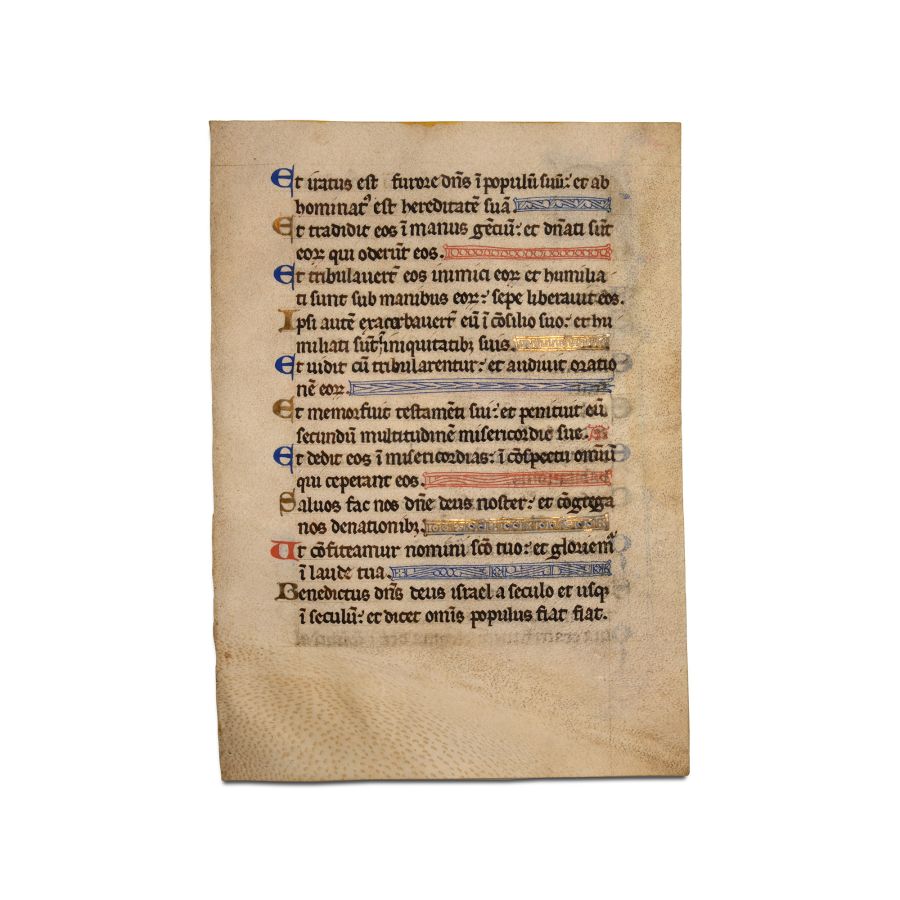 Et iratus est furore dn̄s ī populū suū: et ab
hominatꝰ est hereditatē suā
Et tradidit eos ī manus gētiū: et dn̄ati sūt
eoꝝ qui oderūt eos.
Et tribulauerūt eos inimici eoꝝ et humilia
ti sunt sub manibus eoꝝ: sepe liberauit eos.
Ipsi autē exacerbauerūt eū ī cōsilio suo: et hu
miliati sūt ī iniquitatibꝫ suis.
Et uidit cū tribularentur: et audiuit oratio
nē eoꝝ.
Et memor fuit testamēti sui: et penituit eū
secundū multitudinē misericordie sue.
Et dedit eos ī misericordias: ī cōspectu omniū
qui ceperant eos.
Saluos fac nos dn̄e deus noster: et cōgrega
nos denationibꝫ.
Ut cōfiteamur nomini scō tuo: et gloriemᷣ
ī laude tua.
Benedictus dn̄s deus israel a seculo et usqꝫ
ī seculū: et dicet omīs populus fiat fiat.